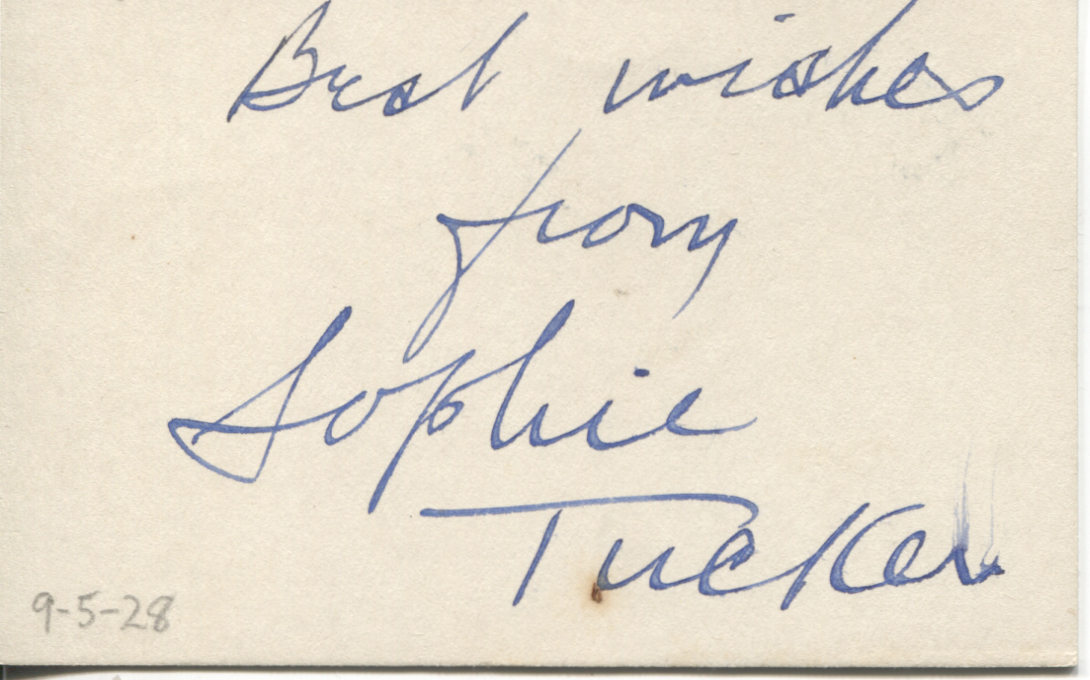 Best wishes
from
Sophie
Tucker
9-5-28